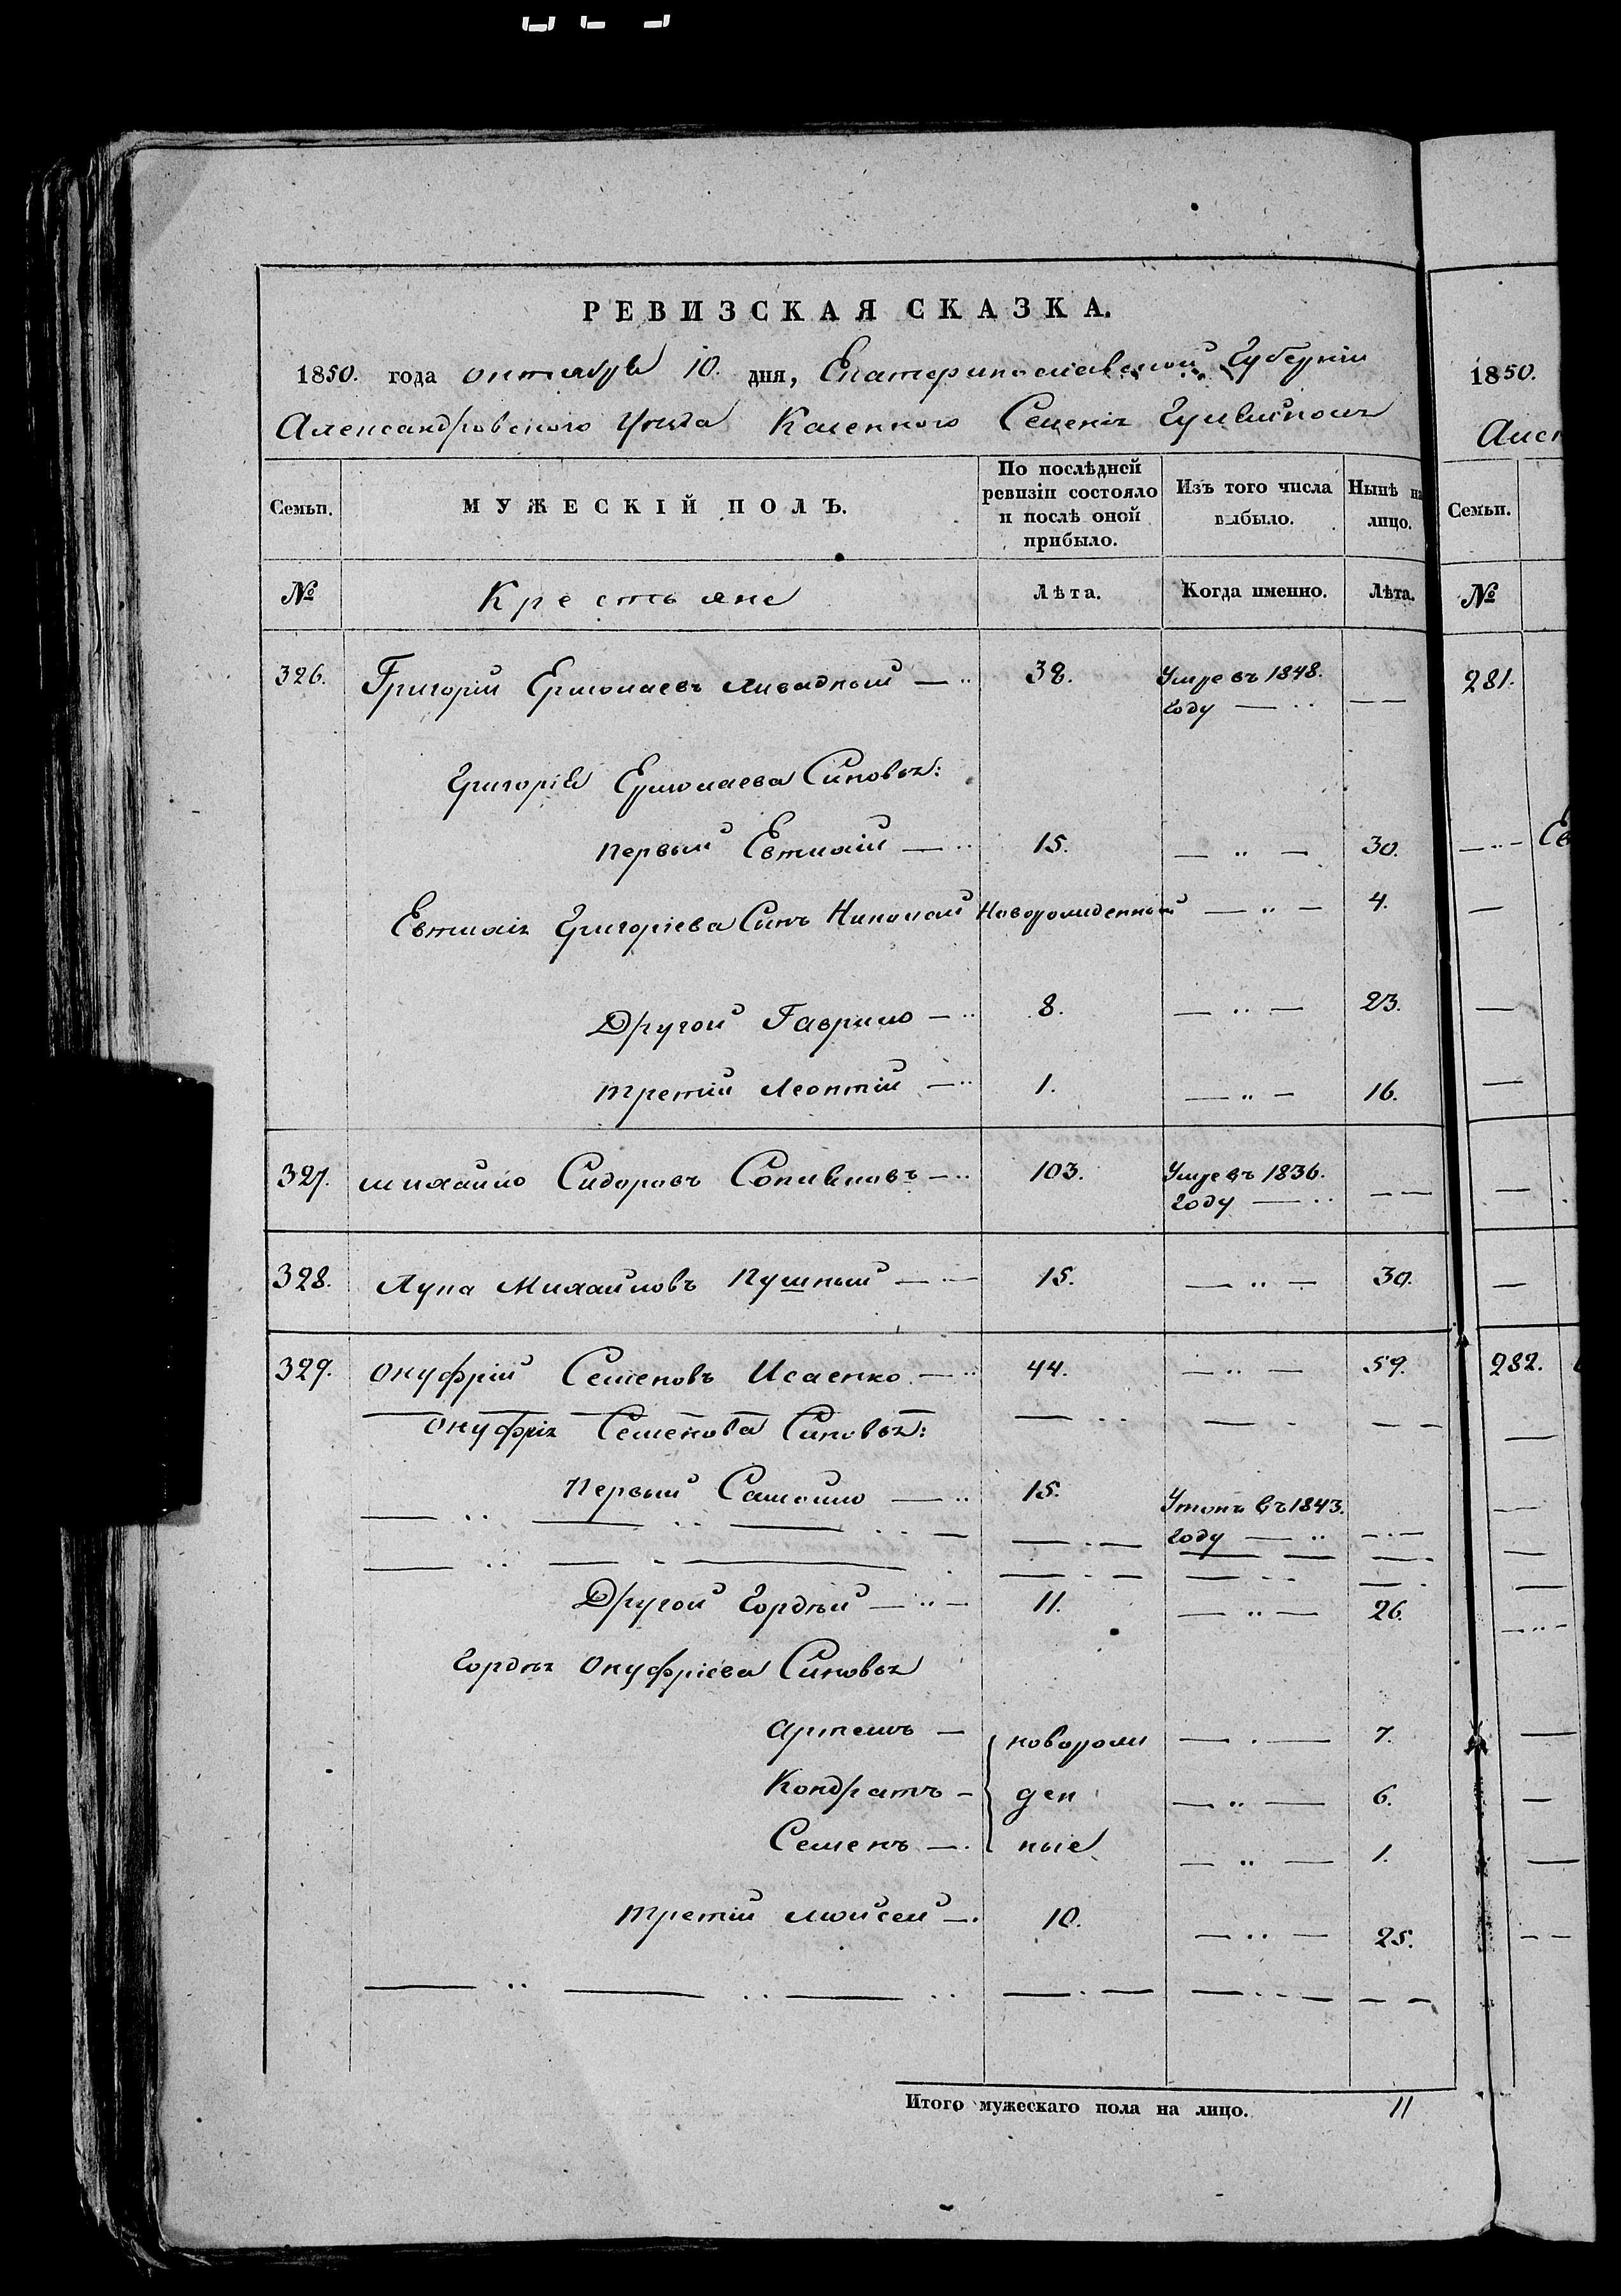 РЕВИЗСКАЯ СКАЗКА.
1850. года октября 10. дня, Екатеринославской Губерніи
Александровского Уезда Казенного Селенія
Семьи. МУЖЕСКІЙ ПОЛЪ. По послѣдней ревизіи состояло и послѣ оной прибыло. Изъ того числа выбыло. Нынѣ на лицо.
№ Крестьяне Лѣта. Когда именно. Лѣта.
326. Григорій Ермолаевъ Ливадный — 38. Умре въ 1848. году — — —
Григорія Ермолаева Синовья:
Первый Евтихій — 15. — 30.
Евтихія Григоріева Синъ Николай Новорожденный — 4.
Другой Гаврило — 8. — 23.
Третій Леонтій — 1. — 16.
327. Михайло Сидоровъ — 103. Умре въ 1836. году — — —
328. Лука Михайловъ Пушный — 15. — 30.
329. Онуфрій Семеновъ Исаенко — 44. — 59.
Онуфрія Семенова Синовья:
Первый Самойло — 15. Утопъ въ 1843. году — — —
Другой Гордѣй — 11. — 26.
Гордѣя Онуфріева Синовья
Артемъ — новорож — 7.
Кондратъ — ден — 6.
Семенъ — ные — 1.
Третій Мойсей — 10. — 25.
Итого мужескаго пола на лицо. 11
1850.
Алек
Семьи.
№
281.
Ев
282.